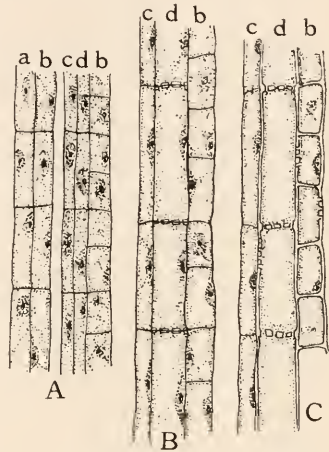 a b c d b
c d b
c d b
A
B
C